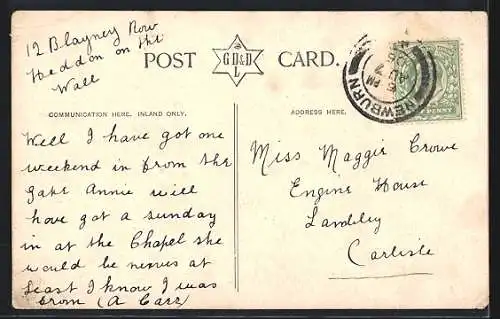 12 Blayney Row
Heddon on the
Wall
POST CARD.
G D & D
L
COMMUNICATION HERE, INLAND ONLY.
ADDRESS HERE.
NEWBURN
5 PM
AU 7
PENNY
Well I have got one
weekend in from the
Annie will
have got a sunday
in at the Chapel she
would be nerves at
least I know I was
from (A Carr)
Miss Maggie Crowe
Engine House
Carlisle